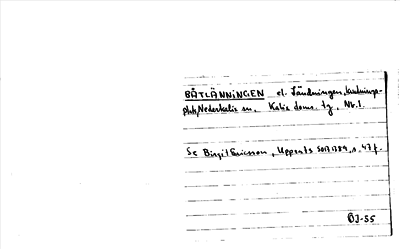 BÅTLÄNNINGEN el. Ländningen, landnings-
plats, Nederkalix sn. Kalix doms. tg, Nb.l.
Se Birgit Ericsson, Uppsats SOFI 1984, s. 47 f.
BJ-55